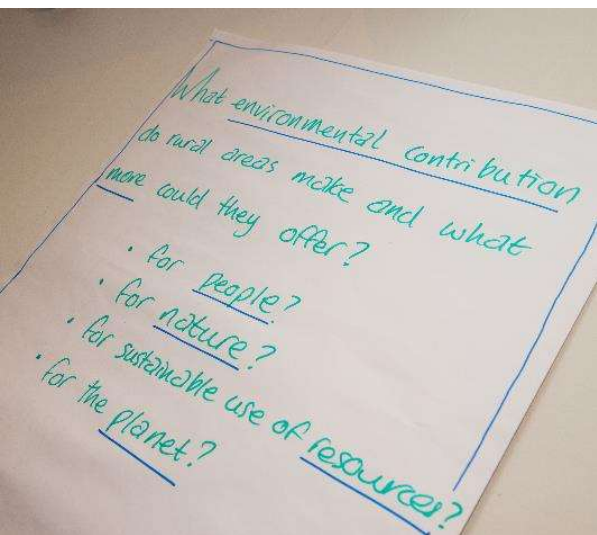 What environmental contribution
do rural areas make and what
more could they offer?
· for people?
· for nature?
· for sustainable use of resources?
· for the planet?